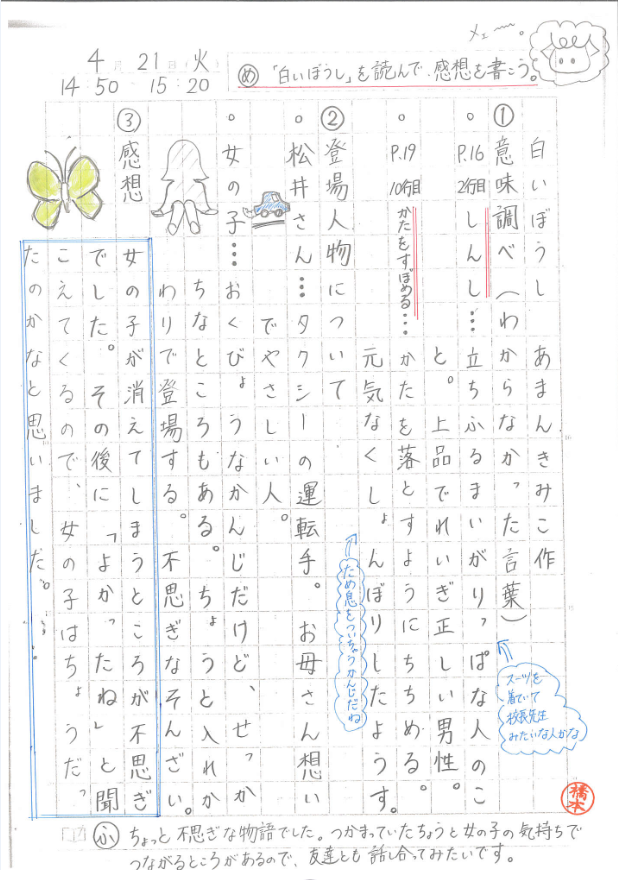 メェ〜。
4月21日火
14:50 15:20
め 「白いぼうし」を読んで、感想を書こう。
白いぼうし あまんきみこ作
① 意味調べ（わからなかった言葉）
。P.16 2行目 しんし…立ちふるまいがりっぱな人のこ
と。上品でれいぎ正しい男性。
。P.19 10行目 かたをすぼめる…かたを落とすようにちぢめる。
元気なくしょんぼりしたようす。
スーツを
着ていて
校長先生
みたいな人かな
ため息をついちゃうかんじだね
② 登場人物について
。松井さん…タクシーの運転手。お母さん想い
でやさしい人。
。女の子…おくびょうなかんじだけど、せっか
ちなところもある。ちょうと入れか
わりで登場する。不思ぎなそんざい。
③ 感想
女の子が消えてしまうところが不思ぎ
でした。その後に「よかったね」と聞
こえてくるので、女の子はちょうだっ
たのかなと思いました。
橋本
ふ ちょっと不思ぎな物語でした。つかまっていたちょうと女の子の気持ちで
つながるところがあるので、友達とも話し合ってみたいです。